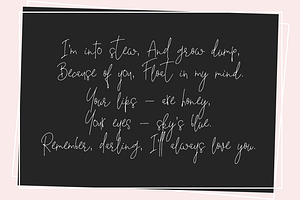 I'm into stew, And grow dump,
Because of you, Float in my mind.
Your lips – are honey,
Your eyes – sky's blue.
Remember, darling, I'll always love you.